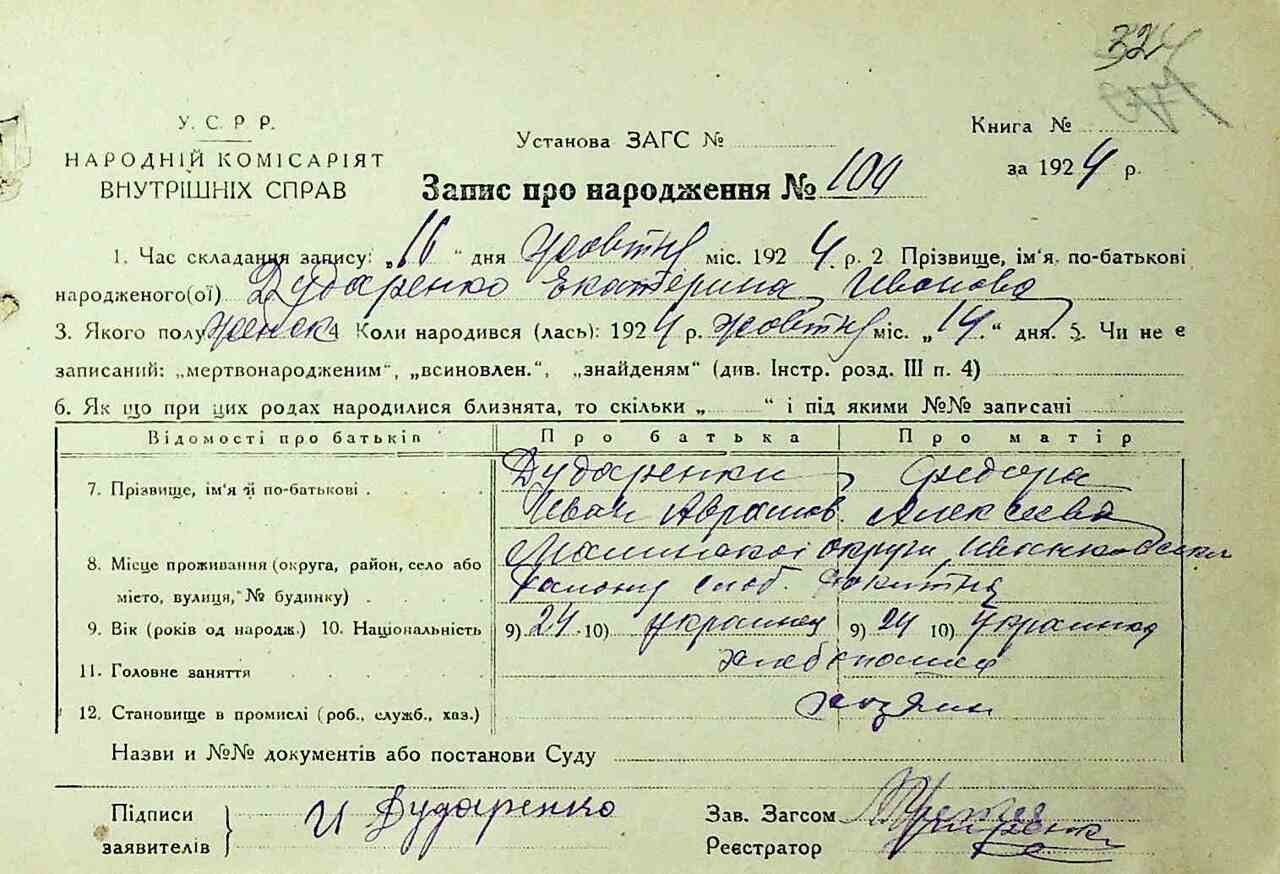 324
У. С. Р. Р.
НАРОДНІЙ КОМІСАРІЯТ
ВНУТРІШНІХ СПРАВ
Установа ЗАГС №
Книга №
за 1924 р.
Запис про народження № 100
1. Час складання запису: „16“ дня Жовтня міс. 1924 р. 2 Прізвище, ім'я, по-батькові
народженого(ої) Дударенко Екатерина Иванова
3. Якого полу женск 4 Коли народився (лась): 1924 р. жовтня міс. „14.“ дня. 5. Чи не є
записаний: „мертвонародженим“, „всиновлен.“, „знайденям“ (див. Інстр. розд. III п. 4)
6. Як що при цих родах народилися близнята, то скільки „ “ і під якими №№ записані
Відомості про батьків Про батька Про матір
7. Прізвище, ім'я й по-батькові Дударенки Федора
Иван Аврамов. Алексеева
8. Місце проживання (округа, район, село або округи
місто, вулиця, № будинку) району слоб.
9. Вік (років од народж.) 10. Національність 9) 24 10) украинец 9) 24 10) Украинка
11. Головне заняття
12. Становище в промислі (роб., служб., хаз.) хозяин
Назви и №№ документів або постанови Суду
Підписи
заявителів
И Дударенко
Зав. Загсом
Реєстратор